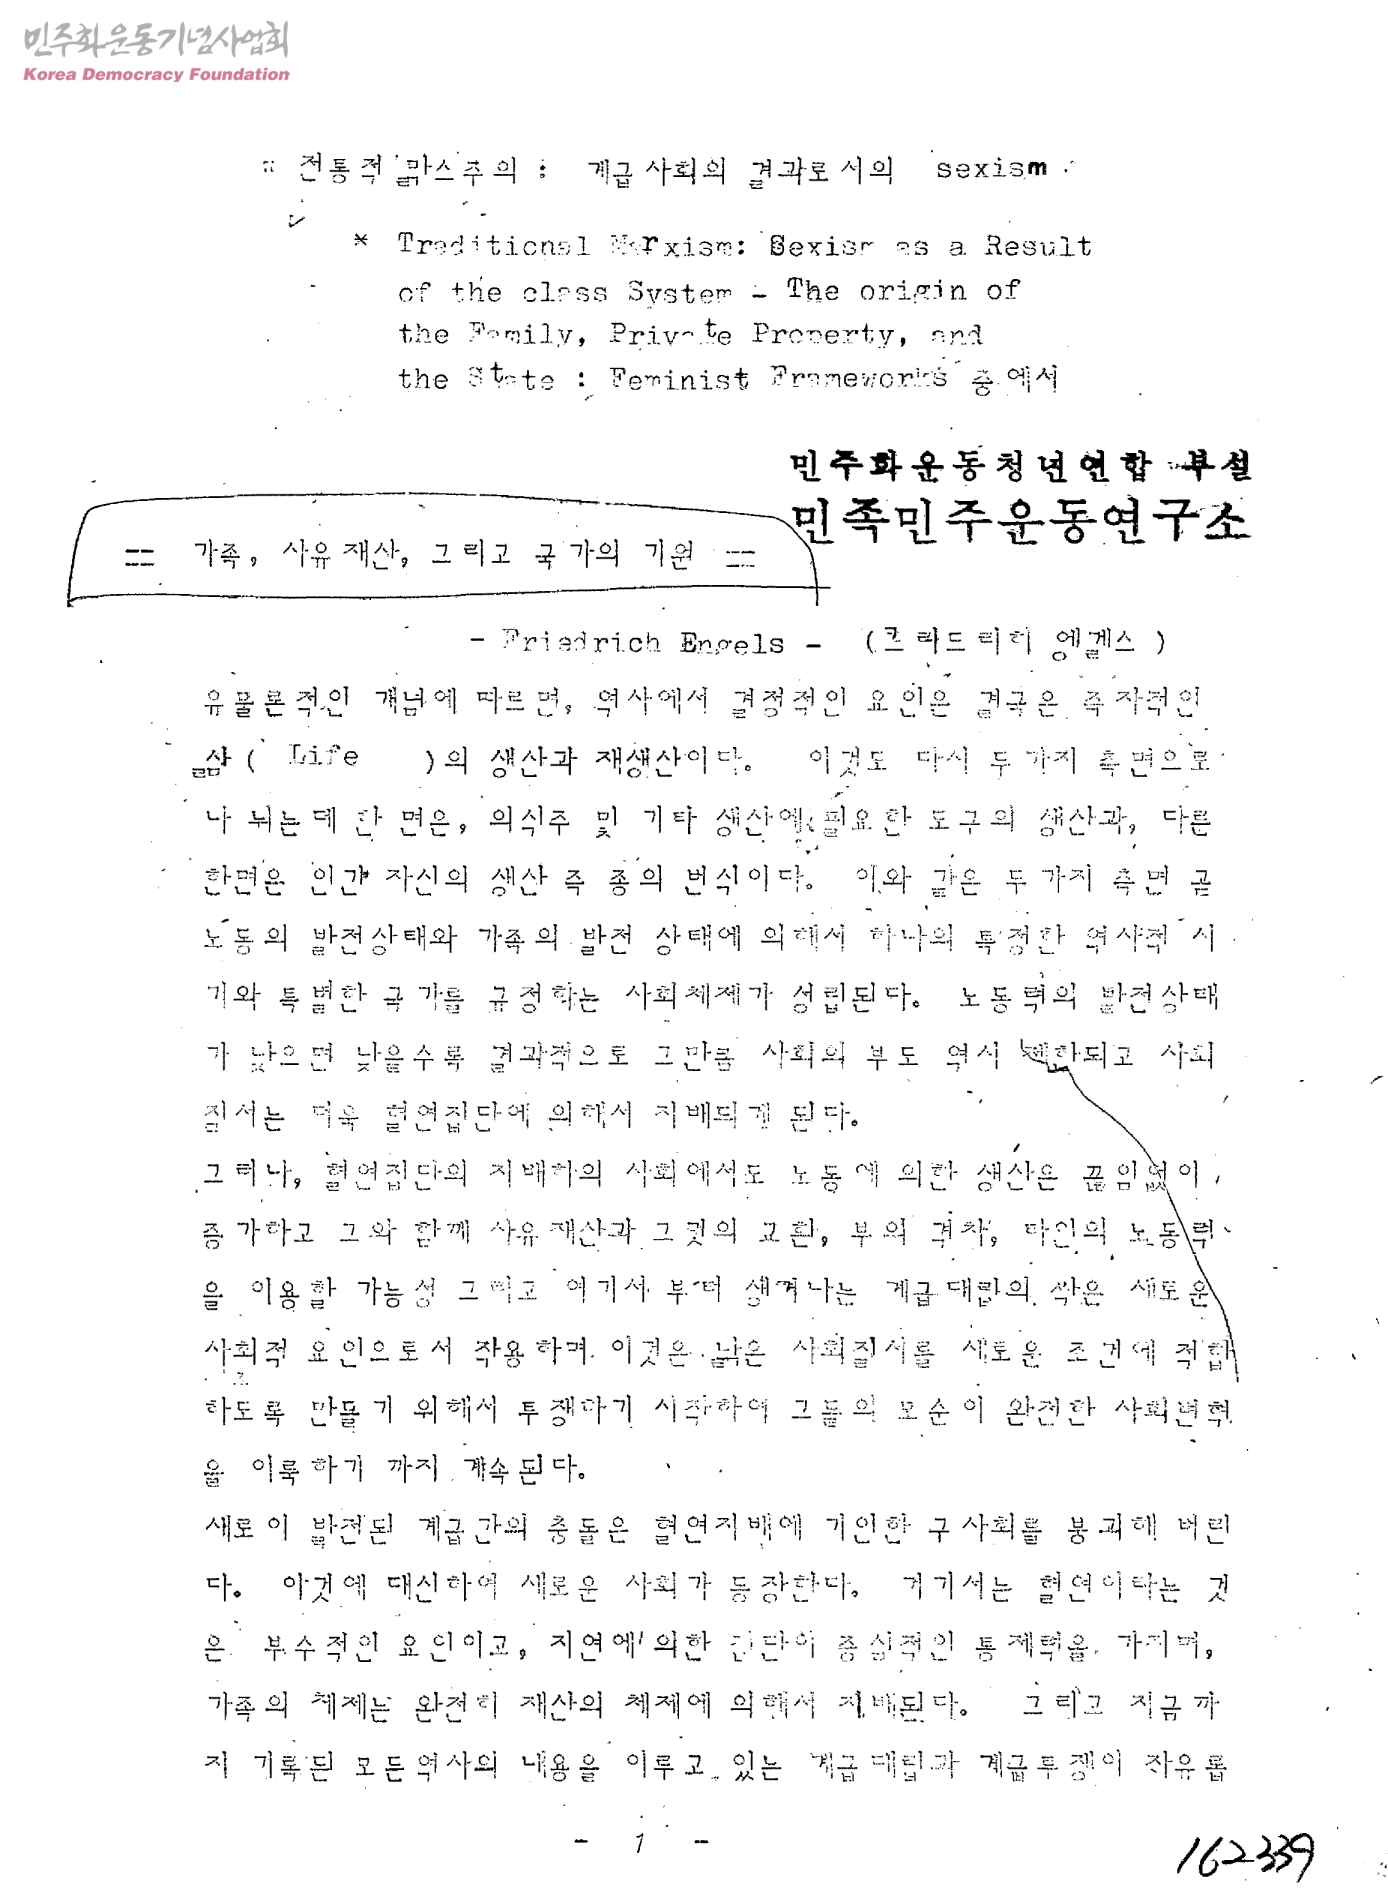 민주화운동기념사업회
Korea Democracy Foundation
:: 전통적 맑스주의 : 계급사회의 결과로서의 sexism
* Traditional Marxism: Sexism as a Result
of the class System - The origin of
the Family, Private Property, and
the State : Feminist Frameworks 중에서
민주화운동청년연합 부설
민족민주운동연구소
== 가족, 사유재산, 그리고 국가의 기원 ==
- Friedrich Engels - (프리드리히 엥겔스 )
유물론적인 개념에 따르면, 역사에서 결정적인 요인은 결국은 즉자적인
삶 ( Life )의 생산과 재생산이다. 이것도 다시 두가지 측면으로
나뉘는데 한 면은, 의식주 및 기타 생산에 필요한 도구의 생산과, 다른
한면은 인간 자신의 생산 즉 종의 번식이다. 이와 같은 두가지 측면 곧
노동의 발전상태와 가족의 발전 상태에 의해서 하나의 특정한 역사적 시
기와 특별한 국가를 규정하는 사회체제가 성립된다. 노동력의 발전상태
가 낮으면 낮을수록 결과적으로 그만큼 사회의 부도 역시 제한되고 사회
질서는 더욱 혈연집단에 의해서 지배되게 된다.
그러나, 혈연집단의 지배하의 사회에서도 노동에 의한 생산은 끊임없이
증가하고 그와 함께 사유재산과 그것의 교환, 부의 격차, 타인의 노동력
을 이용할 가능성 그리고 여기서 부터 생겨나는 계급대립의 싹은 새로운
사회적 요인으로서 작용하며 이것은 낡은 사회질서를 새로운 조건에 적합
하도록 만들기 위해서 투쟁하기 시작하여 그들의 모순이 완전한 사회변혁
을 이룩하기 까지 계속된다.
새로이 발전된 계급간의 충돌은 혈연지배에 기인한 구사회를 붕괴해 버린
다. 이것에 대신하여 새로운 사회가 등장한다. 거기서는 혈연이라는 것
은 부수적인 요인이고, 지연에 의한 집단이 중심적인 통제력을 가지며,
가족의 체제는 완전히 재산의 체제에 의해서 지배된다. 그리고 지금까
지 기록된 모든역사의 내용을 이루고 있는 계급대립과 계급투쟁이 자유롭
- 1 -
162339